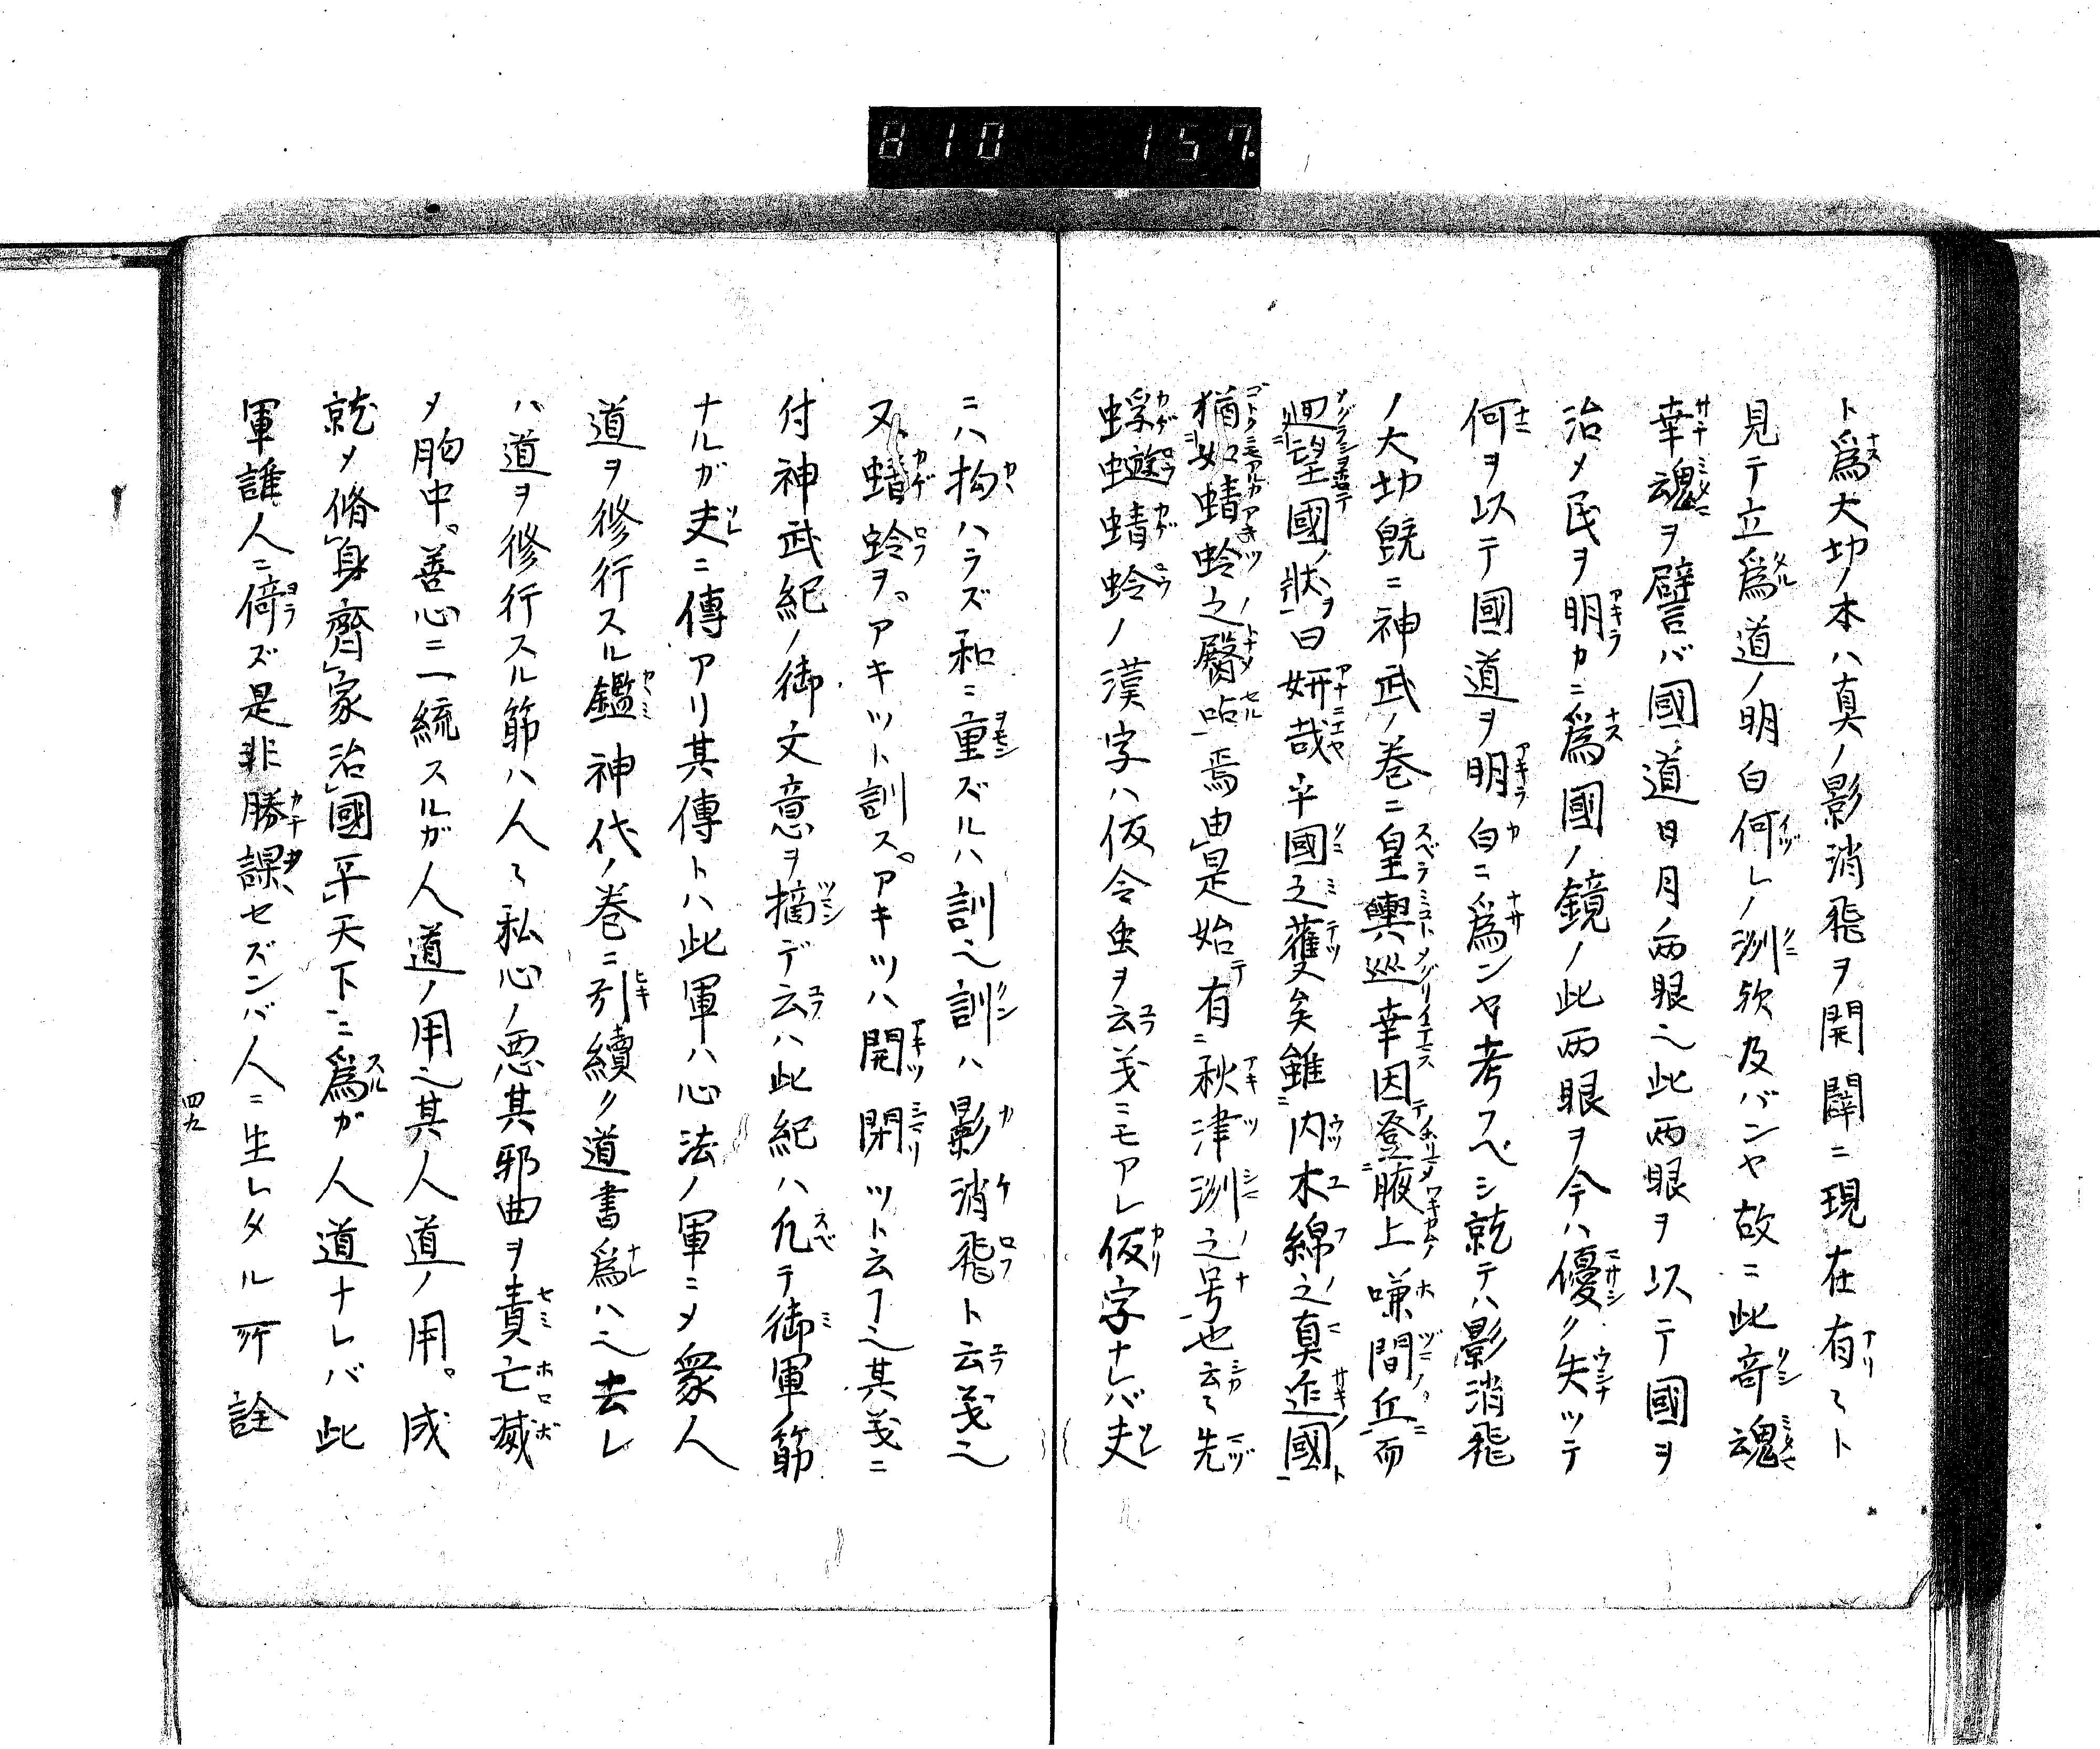 810 157.
ト爲大功ノ本ハ真ノ影消飛ヲ開闢ニ現在有ヽト
見テ立爲道ノ明白何レノ洲欤及バンヤ故ニ此竒魂
幸魂ヲ譬バ國道日月ノ兩眼也此兩眼ヲ以テ國ヲ
治メ民ヲ明カニ爲國ノ鏡ノ此兩眼ヲ今ハ優ク失ッテ
何ヲ以テ國道ヲ明白ニ爲ンヤ考フベシ就テハ影消飛
ノ大功既ニ神武ノ巻ニ皇輿巡幸因登腋上嗛間丘而
廻望國ノ狀ヲ曰妍哉乎國之獲矣雖内木綿之真迮國
猶如蜻蛉之臀呫焉由是始テ有秋津洲之号也云々先
蜉蝣蜻蛉ノ漢字ハ仮令虫ヲ云义ニモアレ仮字ナレバ夫
ニハ拘ハラズ和ニ重ズルハ訓也訓ハ影消飛ト云义也
又蜻蛉ヲ。アキツト訓ス。アキツハ開閉ツト云フ也其义ニ
付神武紀ノ御文意ヲ摘デ云ハ此紀ハ凢テ御軍ノ筋
ナルガ夫ニ傳アリ其傳トハ此軍ハ心法ノ軍ニメ衆人
道ヲ修行スル鑑神代ノ巻ニ引續ク道書爲ハ也去レ
バ道ヲ修行スル節ハ人々私心ノ悪其邪曲ヲ責亡滅
メ胸中。善心ニ一統スルガ人道ノ用也其人道ノ用。成
就メ脩身齊家治國平天下ニ爲ガ人道ナレバ此
軍誰人ニ倚ズ是非勝課セズンバ人ニ生レタル所詮
四九